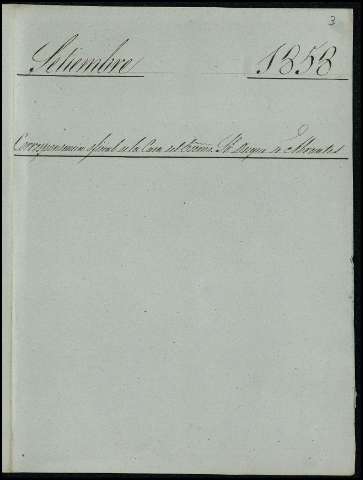 3
Setiembre 1858
Correspondencia oficial de la Casa del Excmo. Sr. Duque de